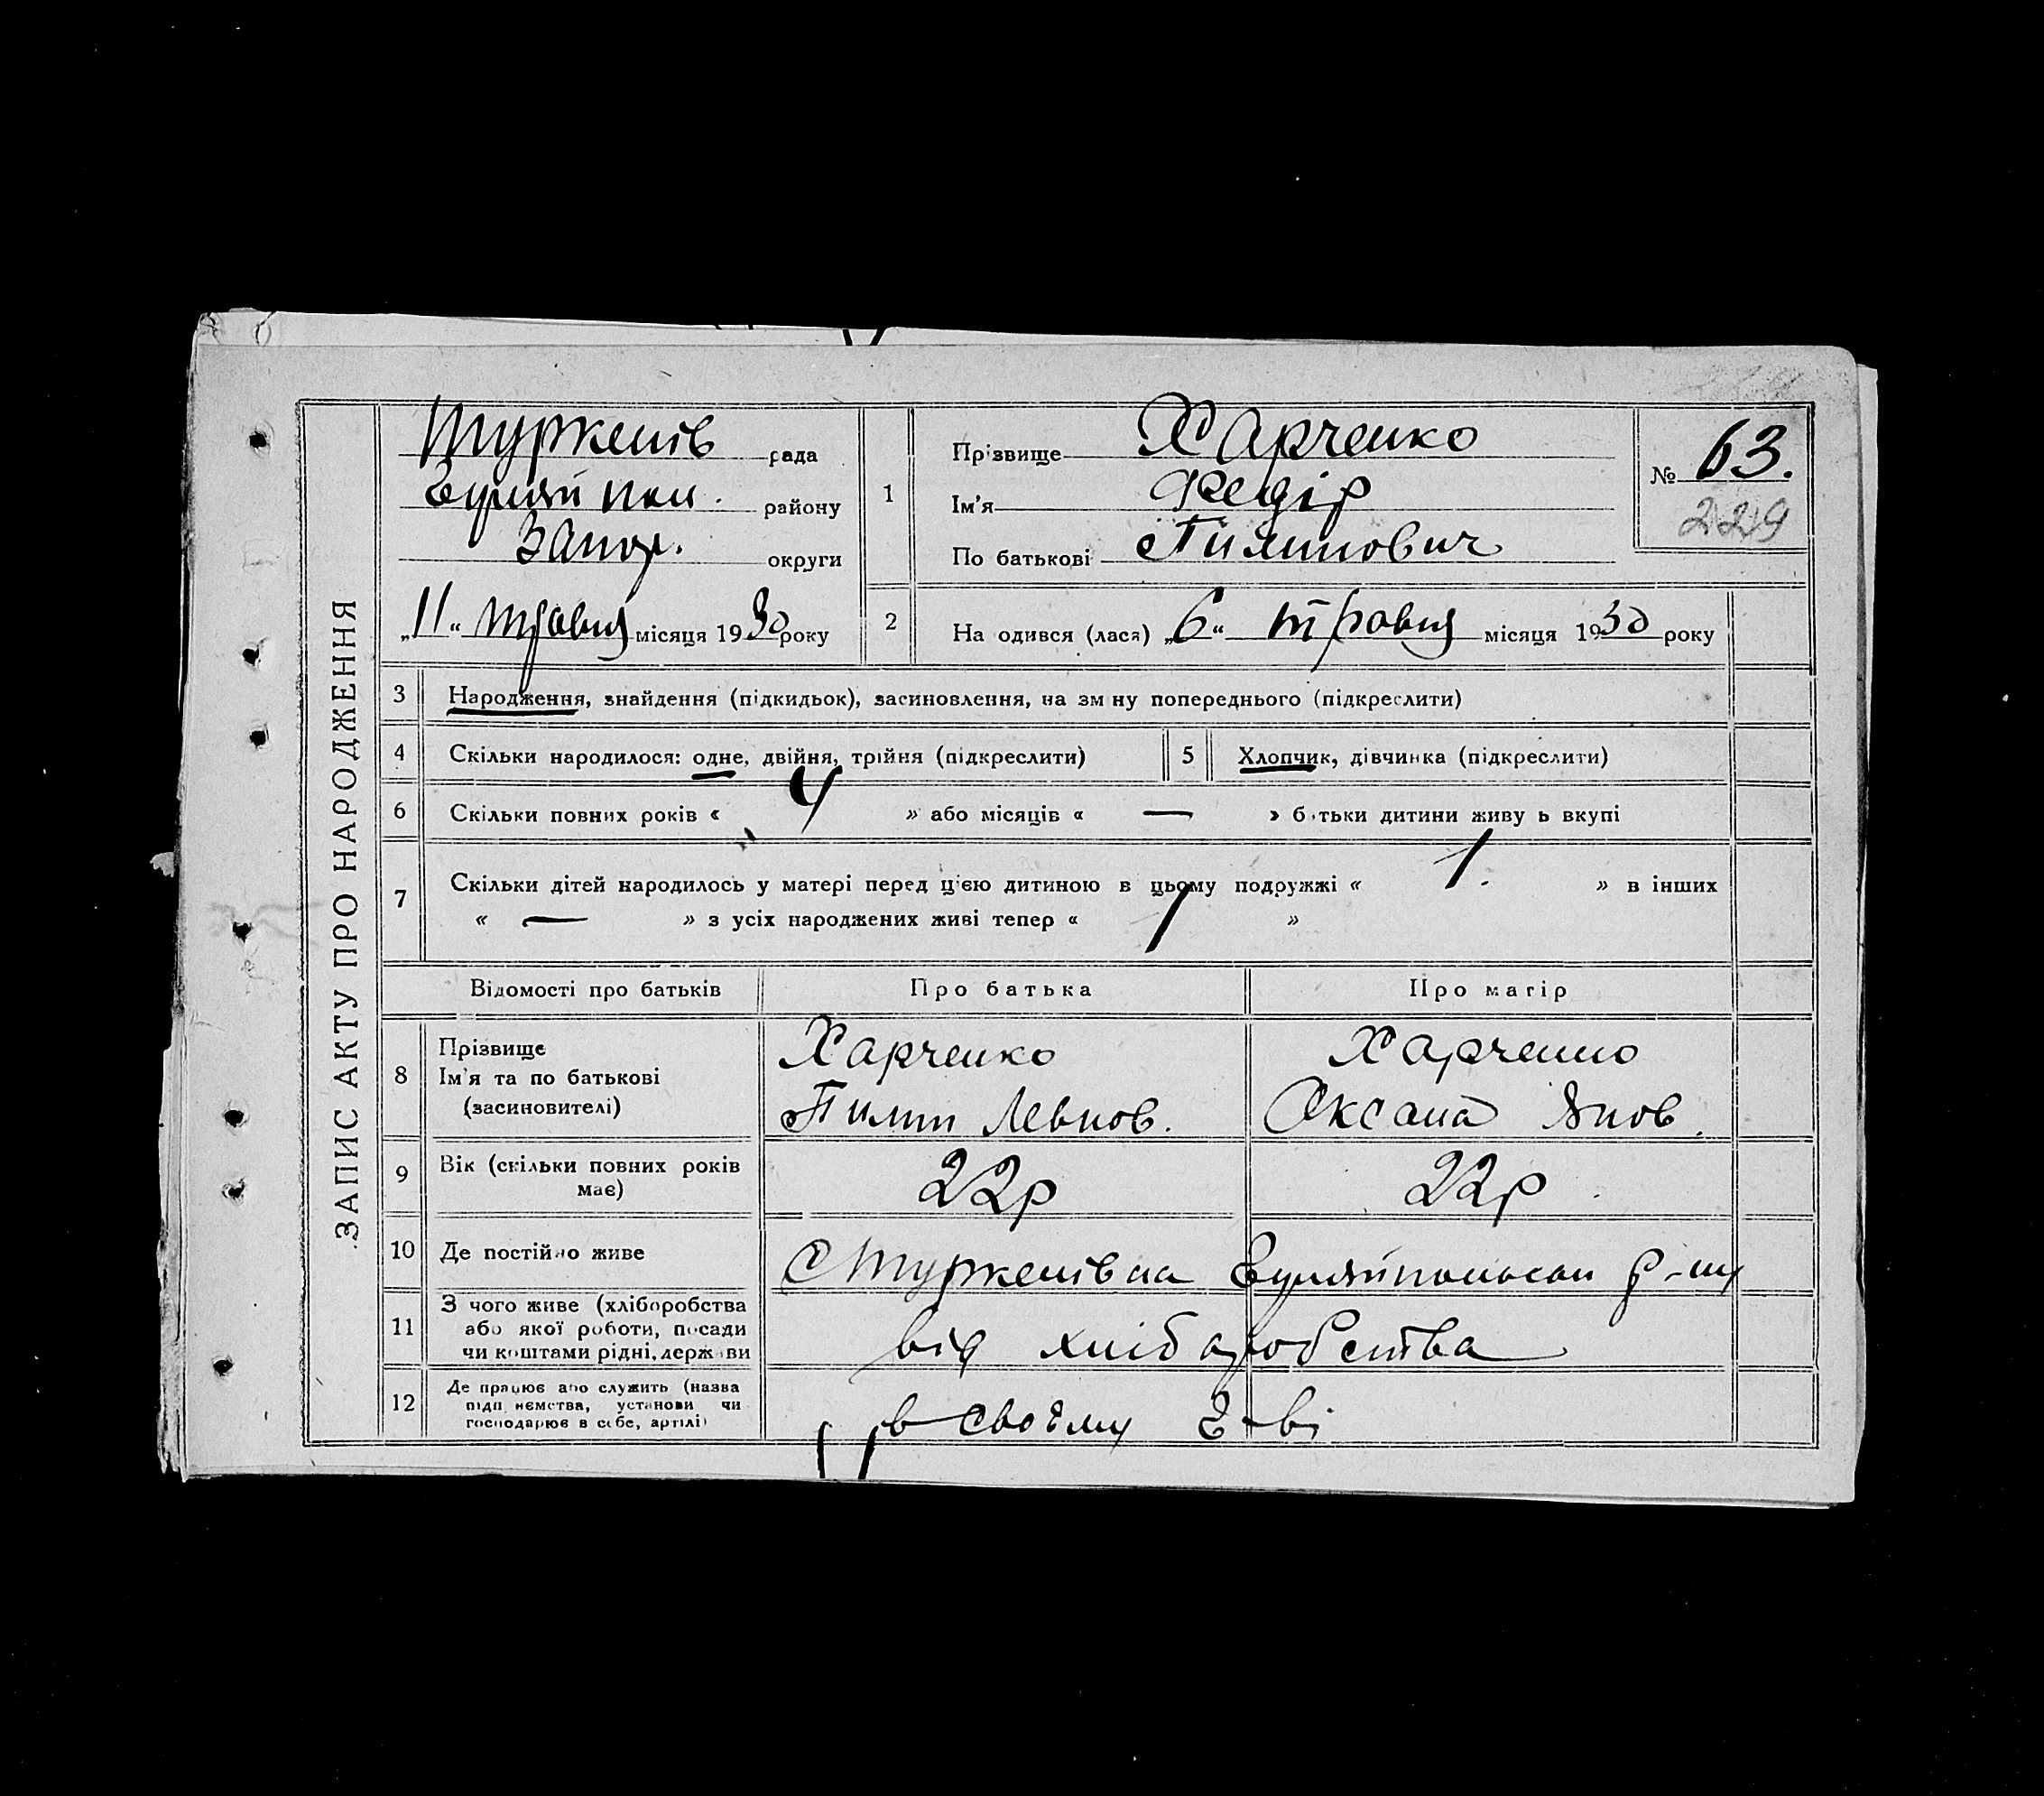 ЗАПИС АКТУ ПРО НАРОДЖЕННЯ
Туркенів рада
Гуляйпол. району
Запор. округи
„11“ травня місяця 1930 року
1
Прізвище Харченко
Ім'я Федір
По батькові Пилипович
№ 63.
229
2 На одився (лася) „6“ травня місяця 1930 року
3 Народження, знайдення (підкидьок), засиновлення, на зм ну попереднього (підкреслити)
4 Скільки народилося: одне, двійня, трійня (підкреслити)
5 Хлопчик, дівчинка (підкреслити)
6 Скільки повних років « 4 » або місяців « — » б тьки дитини живу ь вкупі
7 Скільки дітей народилось у матері перед цією дитиною в цьому подружжі « 1. » в інших
« — » з усіх народжених живі тепер « 1 »
Відомості про батьків Про батька Про матір
8 Прізвище
Ім'я та по батькові
(засиновителі)
Харченко
Пилип Левков.
Харченко
Оксана Яков.
9 Вік (скільки повних років
має)
22р 22р
10 Де постійно живе С Туркенівка Гуляйпольськ р-ну
11 З чого живе (хліборобства
або якої роботи, посади
чи коштами рідні, держави
від хліборобства
12 Де працює або служить (назва
підп иємства, установи чи
господарює в себе, артілі)
в своєму г-ві